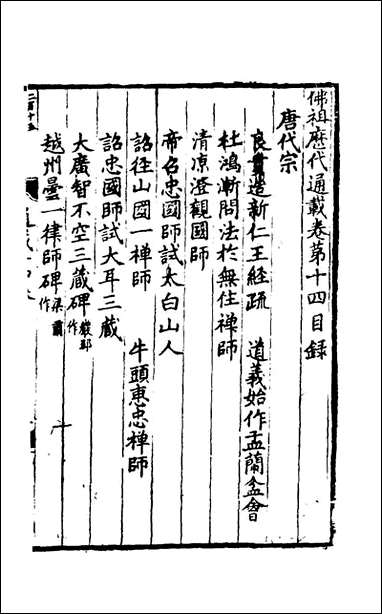 佛祖歷代通載卷第十四目録
唐代宗
良賁造新仁王經疏　道義始作盂蘭盆會
杜鴻漸問法於無住禪師
清凉澄觀國師
帝召忠國師試太白山人
詔徑山國一禅師　牛頭惠忠禅師
詔忠國師試大耳三藏
大廣智不空三藏碑嚴郢作
越州曇一律師碑梁肅作